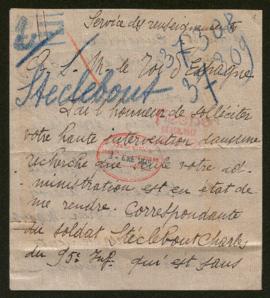 Service des renseignements
37308
37309
à S. M. le Roi d'Espagne
Stéclebout
J'ai l'honneur de solliciter
votre haute intervention dans une
recherche que seule votre ad-
ministration est en état de
me rendre. Correspondante
du soldat Stéclebout Charles
du 95e Inf. qui est sans